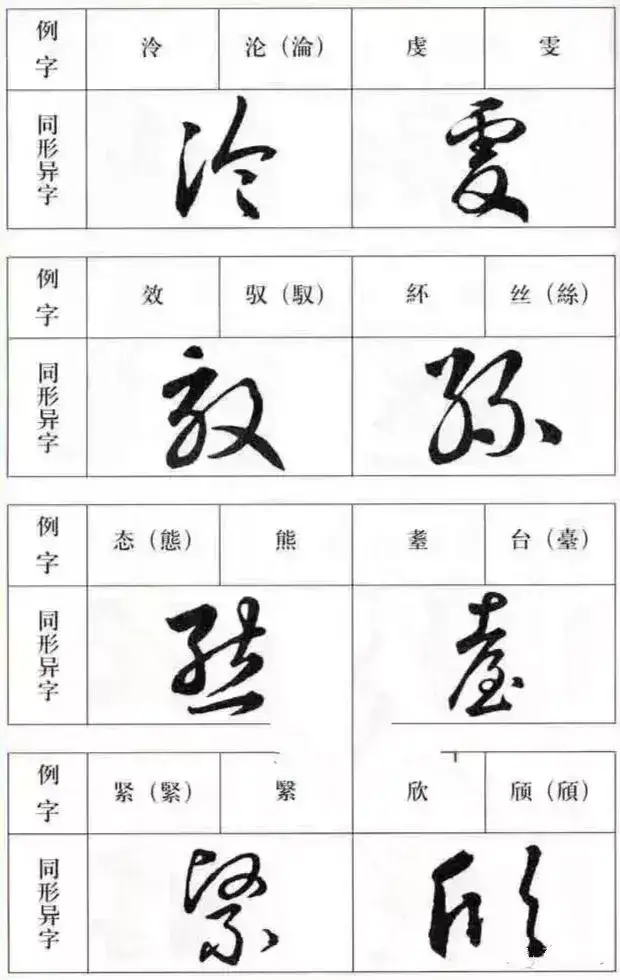 例字 泠 沦（淪） 虔 雯
同形异字
例字 效 驭（馭） 紑 丝（絲）
同形异字
例字 态（態） 熊 耋 台（臺）
同形异字
例字 紧（緊） 繄 欣 颀（頎）
同形异字